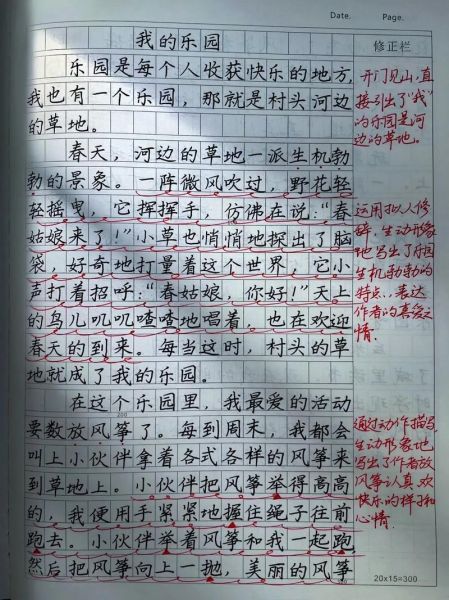 Date.
Page.
我的乐园
修正栏
乐园是每个人收获快乐的地方,
我也有一个乐园,那就是村头河边
的草地。
开门见山,直
接引出了“我”
的乐园是河
边的草地。
春天,河边的草地一派生机勃
勃的景象。一阵微风吹过,野花轻
轻摇曳,它挥挥手,仿佛在说:“春
姑娘来了!”小草也悄悄地探出了脑
袋,好奇地打量着这个世界,它小
声打着招呼:“春姑娘,你好!”天上
的鸟儿叽叽喳喳地唱着,也在欢迎
春天的到来。每当这时,村头的草
地就成了我的乐园。
运用拟人修
辞,生动形象
地写出了乐园
生机勃勃的
特点,表达
作者的喜爱之
情.
在这个乐园里,我最爱的活动
要数放风筝了。每到周末,我都会
叫上小伙伴拿着各式各样的风筝来
到草地上。小伙伴把风筝举得高高
的,我便用手紧紧地握住绳子往前
跑去。小伙伴举着风筝和我一起跑
然后把风筝向上一抛,美丽的风筝
通过动作描写,
生动形象地
写出了作者放
风筝认真、欢
快乐的样子和
心情.
200
20x15=300